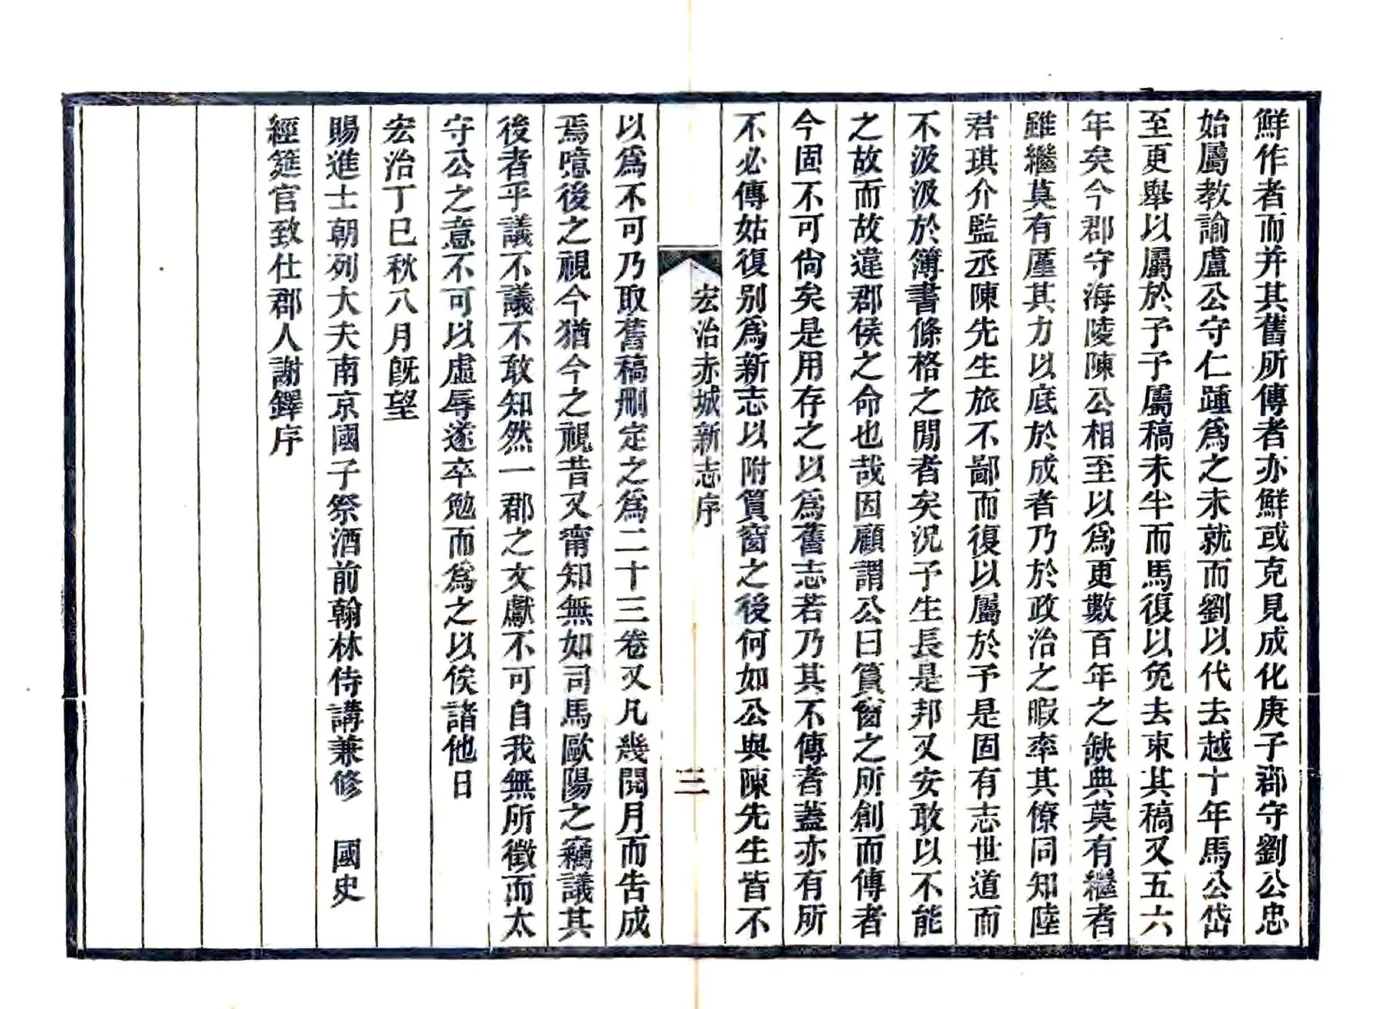 鮮作者而并其舊所傳者亦鮮或克見成化庚子郡守劉公忠
始屬教諭盧公守仁踵爲之未就而劉以代去越十年馬公岱
至更舉以屬於予予屬稿未半而馬復以免去束其稿又五六
年矣今郡守海陵陳公相至以爲更數百年之缺典莫有繼者
雖繼莫有厪其力以底於成者乃於政治之暇率其僚同知陸
君琪介監丞陳先生旅不鄙而復以屬於予是固有志世道而
不汲汲於簿書條格之閒者矣況予生長是邦又安敢以不能
之故而故違郡侯之命也哉因顧謂公曰篔窗之所創而傳者
今固不可尙矣是用存之以爲舊志若乃其不傳者蓋亦有所
不必傳姑復别爲新志以附篔窗之後何如公與陳先生皆不
宏治赤城新志序
三
以爲不可乃取舊稿刪定之爲二十三卷又凡幾閱月而告成
焉噫後之視今猶今之視昔又甯知無如司馬歐陽之竊議其
後者乎議不議不敢知然一郡之文獻不可自我無所徵而太
守公之意不可以虛辱遂卒勉而爲之以俟諸他日
宏治丁巳秋八月旣望
賜進士朝列大夫南京國子祭酒前翰林侍講兼修　國史
經筵官致仕郡人謝鐸序